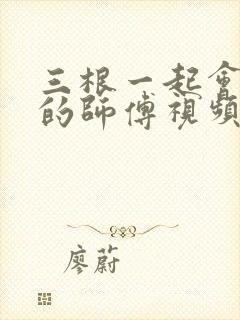 三根一起會
的師傅視頻
廖蔚